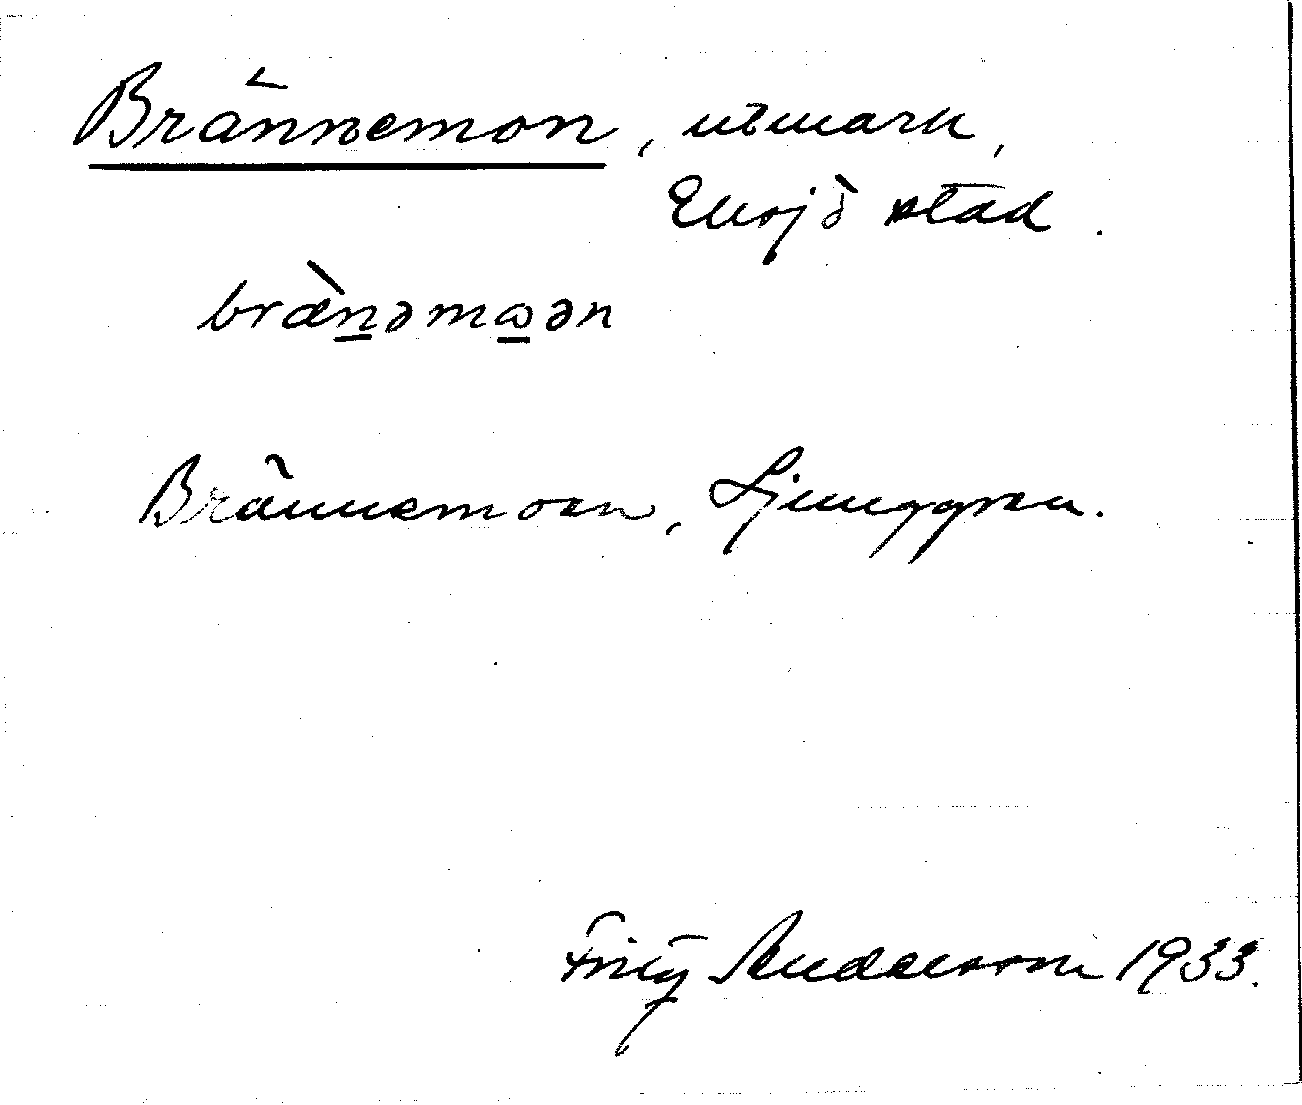 Brännemon, utmark,
Eksjö stad.
bræ̀n̲əmω̲ən
Brännemoen, Ljunggren.
Fritz Andersson 1933.